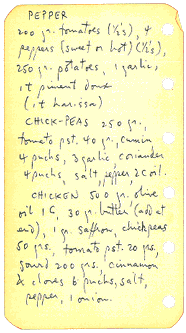 PEPPER
200 gr. tomatoes (1/2's), 4
peppers (sweet or hot) (1/2's),
250 gr. potatoes, 1 garlic,
1t piment doux
(1t harissa)
CHICK-PEAS 250 gr.,
tomato pst. 40 gr., cumin
4 pnchs, 3 garlic coriander
4 pnchs, salt, pepper, 2 c oil.
CHICKEN 500 gr. olive
oil 1 G, 30 gr. butter (add at
end), 1 gr. saffron, chickpeas
50 grs., tomato pst. 20 grs,
gourd 200 grs. cinnamon
& cloves 6 pnchs, salt,
pepper, 1 onion.